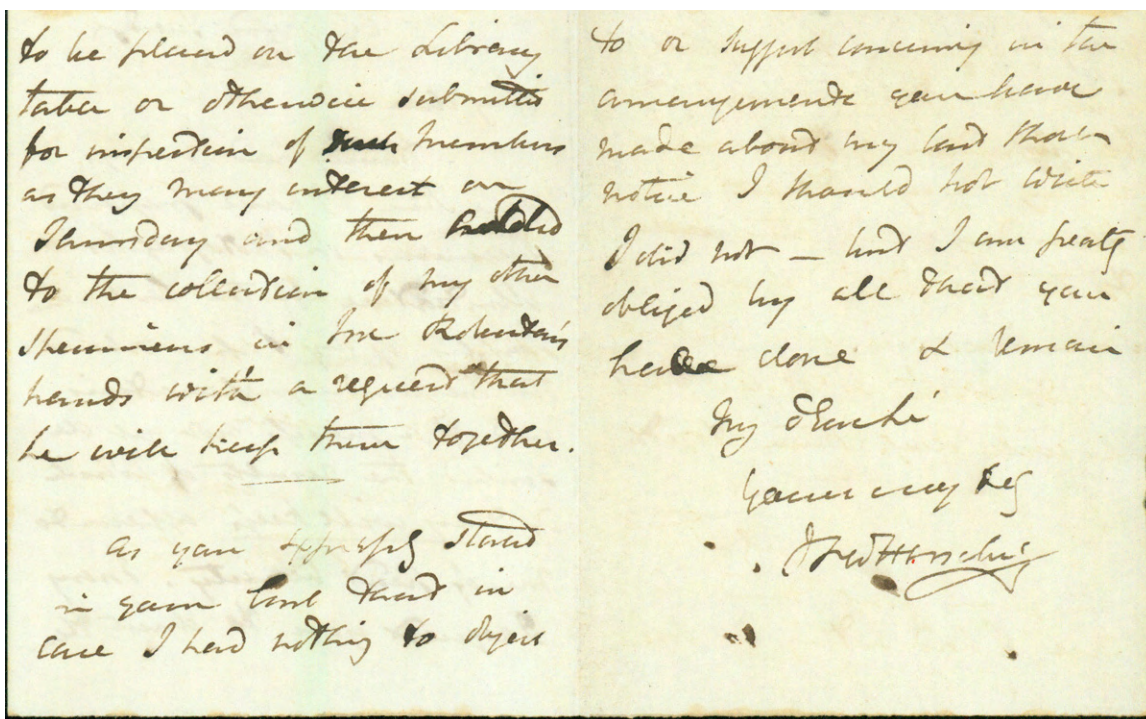 to be placed on the Library
table or otherwise submitted
for inspection of such Members
as they may interest on
Thursday and then added
to the collection of my other
specimens in Mr Roberton's
hands with a request that
he will keep them together.
As you expressly stated
in your last that in
case I had nothing to object
to or suggest concerning in the
arrangements you have
made about my last short
notice I should not write
I did not – but I am greatly
obliged by all that you
have done & remain
My
Yours very try
JFWHerschel